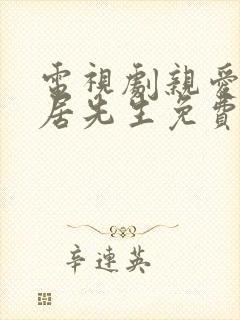 電視劇親愛
居先生免費
辛連英